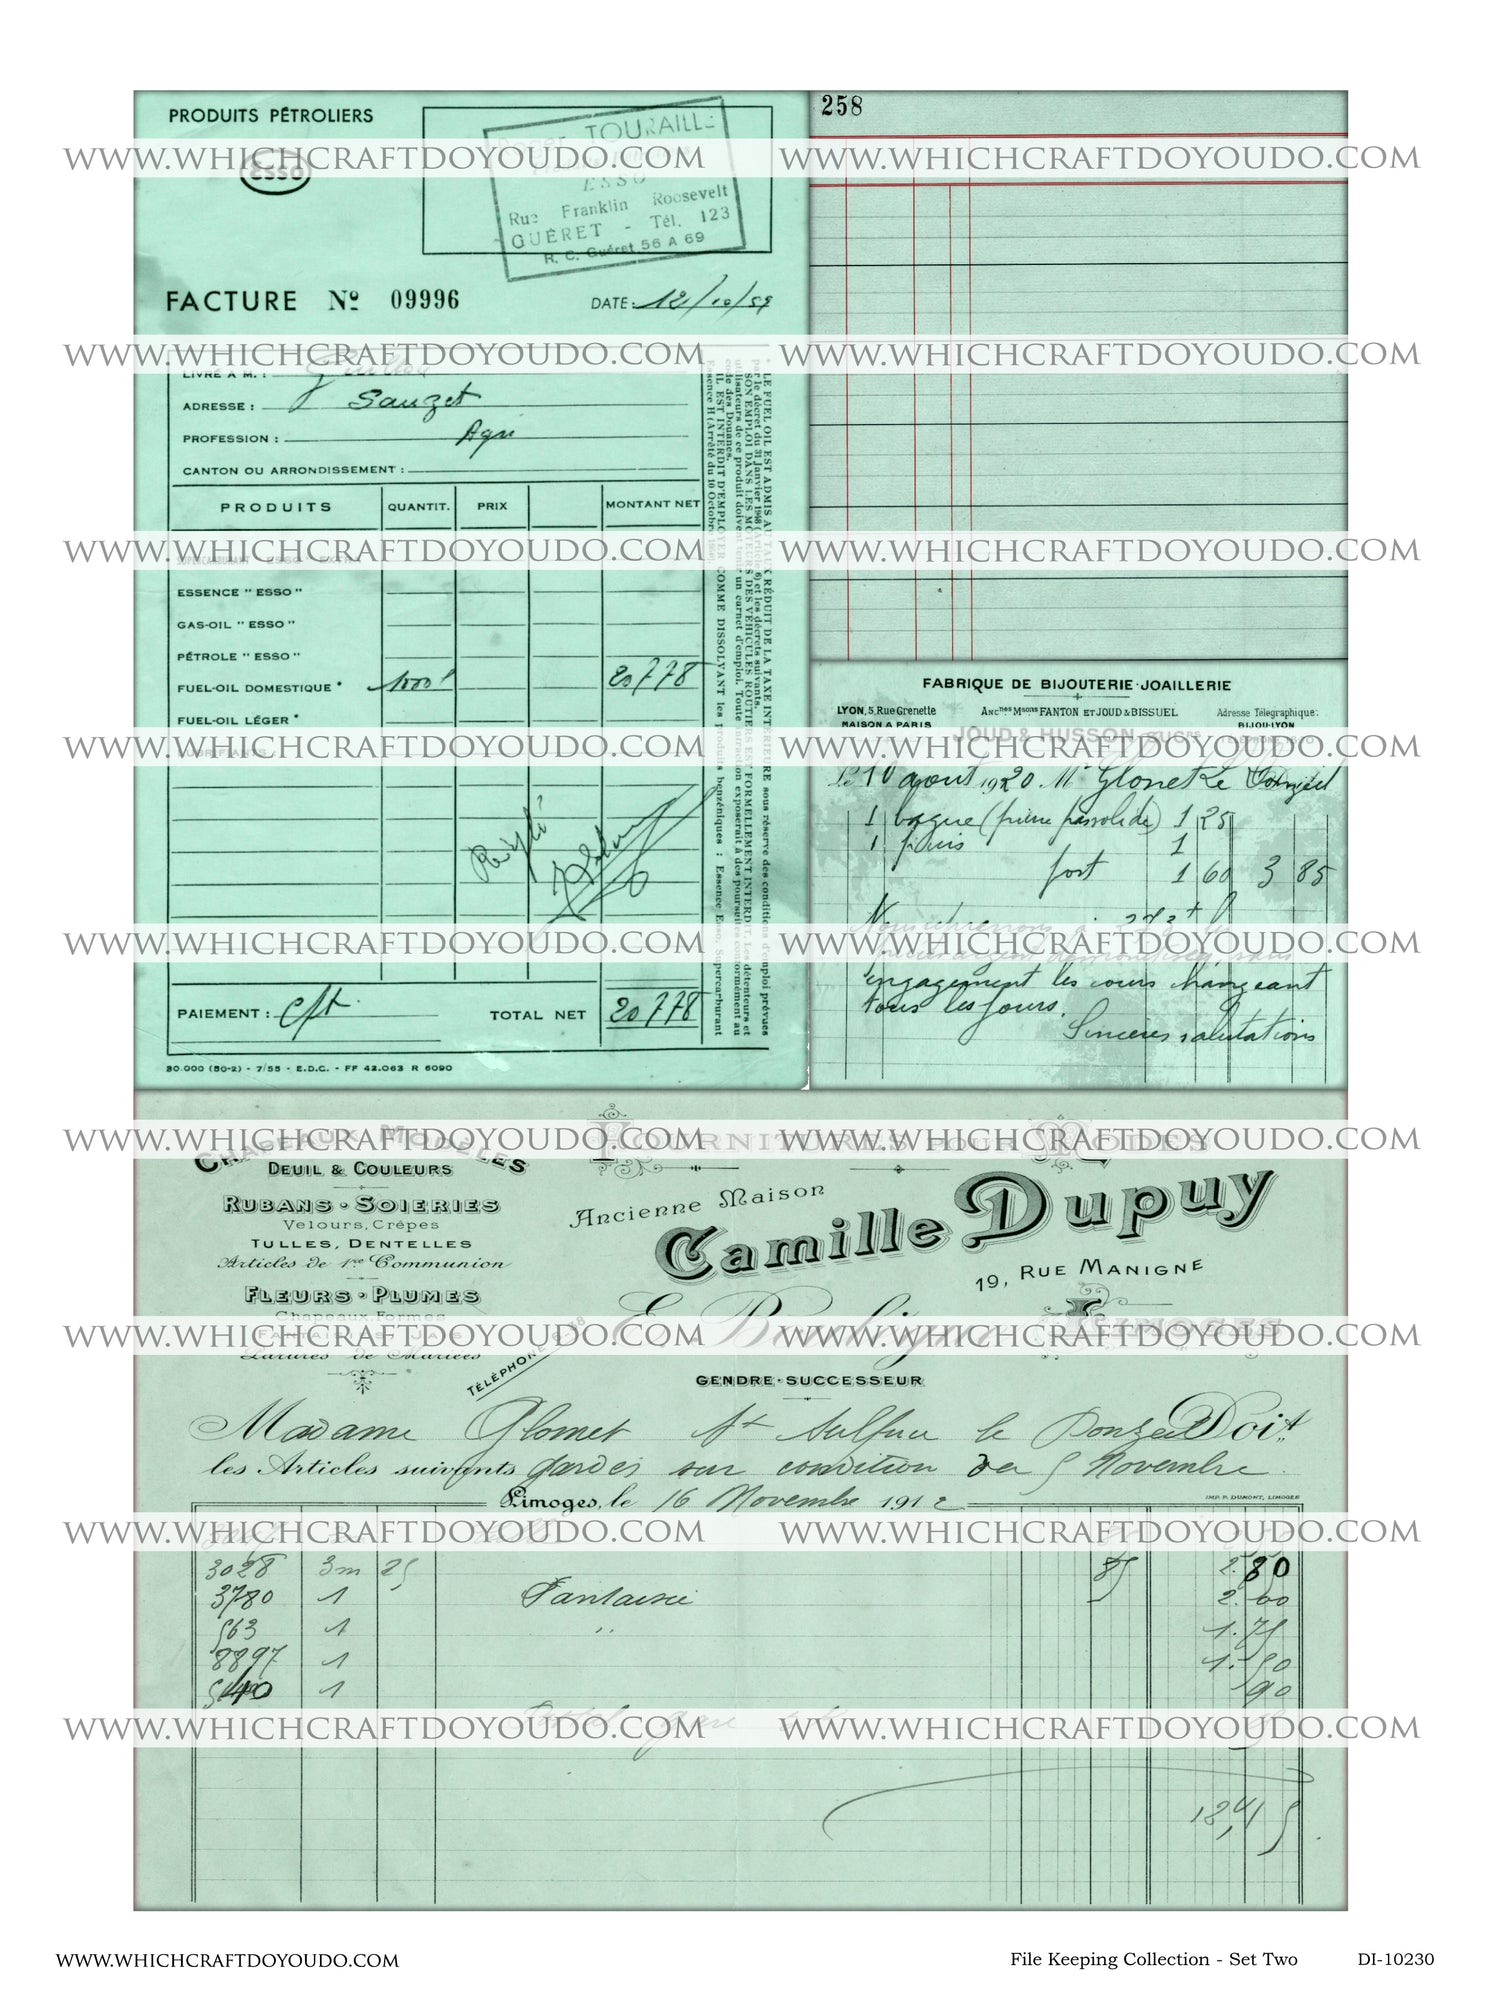 PRODUITS PÉTROLIERS
ESSO
TOURAILLE
ESSO
Rue Franklin Roosevelt
GUÉRET - Tél. 123
R. C. Guéret 56 A 69
258
WWW.WHICHCRAFTDOYOUDO.COM WWW.WHICHCRAFTDOYOUDO.COM
FACTURE Nº 09996 DATE: 12/10/59
WWW.WHICHCRAFTDOYOUDO.COM WWW.WHICHCRAFTDOYOUDO.COM
LIVRÉ A M. :
ADRESSE : Sauzet
PROFESSION : Agri
CANTON OU ARRONDISSEMENT :
PRODUITS QUANTIT. PRIX MONTANT NET
WWW.WHICHCRAFTDOYOUDO.COM WWW.WHICHCRAFTDOYOUDO.COM
SUPERCARBURANT ESSO EXTRA
ESSENCE " ESSO "
GAS-OIL " ESSO "
PÉTROLE " ESSO "
FUEL-OIL DOMESTIQUE * 1000 l 20778
FUEL-OIL LÉGER *
WWW.WHICHCRAFTDOYOUDO.COM WWW.WHICHCRAFTDOYOUDO.COM
LUBRIFIANTS :
WWW.WHICHCRAFTDOYOUDO.COM WWW.WHICHCRAFTDOYOUDO.COM
PAIEMENT : cpt. TOTAL NET 20778
30.000 (50-2) - 7/55 - E.D.C. - FF 42.063 R 6090
* LE FUEL OIL EST ADMIS AU TAUX RÉDUIT DE LA TAXE INTÉRIEURE sous réserve des conditions d'emploi prévues
par le décret du 31 Janvier (Article 6) et les décrets suivants.
SON EMPLOI DANS LES MOTEURS DES VÉHICULES ROUTIERS EST FORMELLEMENT INTERDIT. Les détenteurs et
utilisateurs de ce produit doivent tenir un carnet d'emploi. Toute infraction exposerait à des poursuites conformément au
code des Douanes.
IL EST INTERDIT D'EMPLOYER COMME DISSOLVANT les produits benzéniques : Essence Esso, Supercarburant
Essence H (Arrêté du 10 Octobre
FABRIQUE DE BIJOUTERIE-JOAILLERIE
LYON, 5, Rue Grenette Ancnes Msons FANTON ET JOUD & BISSUEL Adresse Télégraphique:
MAISON A PARIS BIJOU-LYON
JOUD & HUSSON, SUCRS
Le 10 aout 1920. Mr Glonet Le Donzeil
1 bague 1 25
1 1
port 1 60 3 85
engagement les cours changeant
tous les jours.
Sinceres salutations
WWW.WHICHCRAFTDOYOUDO.COM WWW.WHICHCRAFTDOYOUDO.COM
CHAPEAUX MODÈLES
DEUIL & COULEURS
RUBANS • SOIERIES
Velours, Crêpes
TULLES, DENTELLES
Articles de 1re Communion
FLEURS • PLUMES
Chapeaux, Formes
FANTAISIES, JAIS
Parures de Mariées
TÉLÉPHONE
FOURNITURES POUR MODES
Ancienne Maison
Camille Dupuy
19, RUE MANIGNE
LIMOGES
GENDRE-SUCCESSEUR
WWW.WHICHCRAFTDOYOUDO.COM WWW.WHICHCRAFTDOYOUDO.COM
Madame Glomet St Sulpice le Donzeil Doit
les Articles suivants gardés sur condition du 5 Novembre
Limoges, le 16 Novembre 1912
IMP. P. DUMONT, LIMOGES
WWW.WHICHCRAFTDOYOUDO.COM WWW.WHICHCRAFTDOYOUDO.COM
3028 3m 25 85 2.80
3780 1 Fantaisie 2.60
563 1 " 1.75
8897 1 1.50
1 90
WWW.WHICHCRAFTDOYOUDO.COM WWW.WHICHCRAFTDOYOUDO.COM
WWW.WHICHCRAFTDOYOUDO.COM File Keeping Collection - Set Two DI-10230